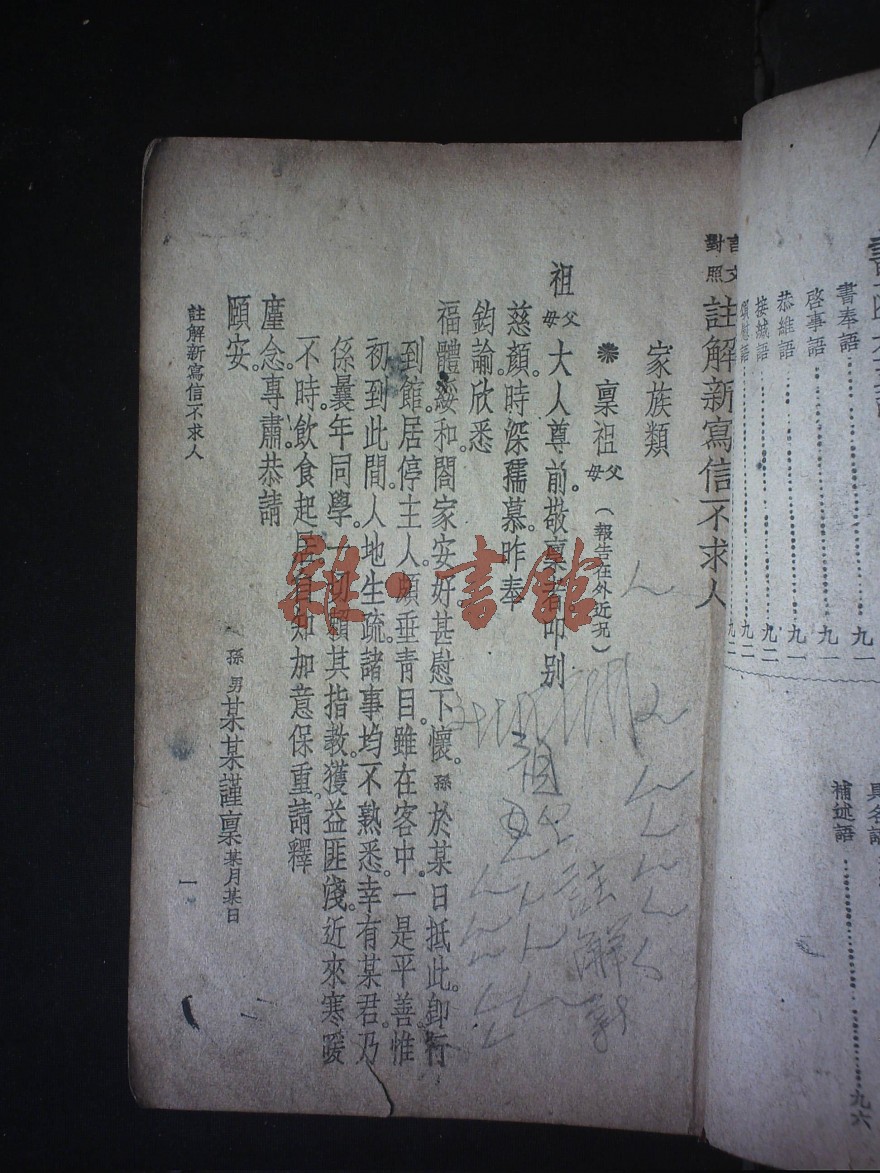 書奉語……九一
啓事語……九一
恭維語……九一
接緘語……九二
頌慰語……九二
具名語
補述語……九六
言文對照註解新寫信不求人
家族類
稟祖父母（報告在外近況）
祖父母大人尊前。敬稟者。叩别
慈顏。時深孺慕。昨奉
鈞諭。欣悉
福體綏和。閤家安好。甚慰下懷。孫於某日抵此。卽行
到館。居停主人。頗垂青目。雖在客中。一是平善。惟
初到此間。人地生疏。諸事均不熟悉。幸有某君。乃
係曩年同學。一切賴其指教。獲益匪淺。近來寒暖
不時。飲食起居。自知加意保重。請釋
廑念。專肅。恭請
頤安。
孫男某某謹稟某月某日
註解新寫信不求人
一
祖
註解新
雜·書館